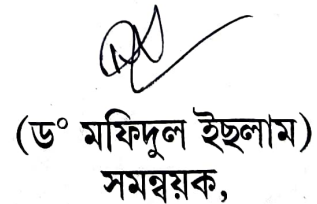 (ড° মফিদুল ইছলাম)
সমন্বয়ক,